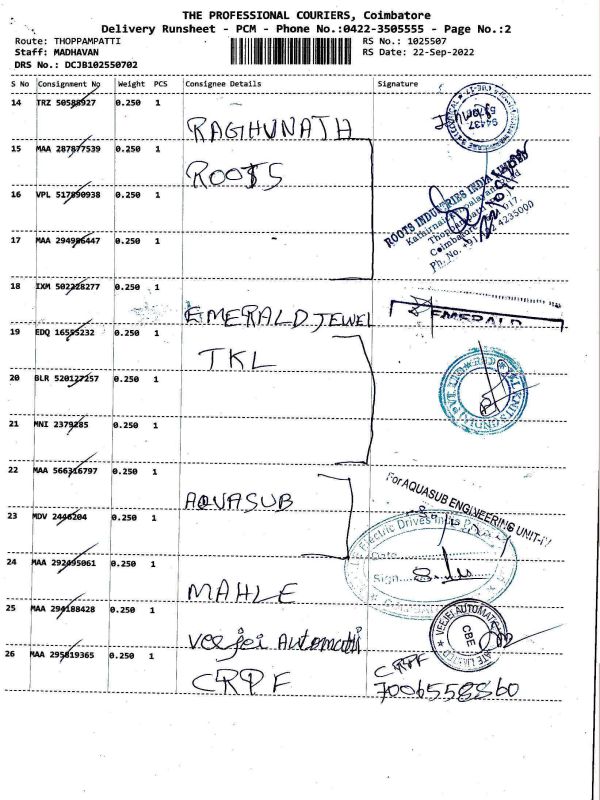 THE PROFESSIONAL COURIERS, Coimbatore
Delivery Runsheet - PCM - Phone No.:0422-3505555 - Page No.:2
Route: THOPPAMPATTI
RS No.: 1025507
Staff: MADHAVAN
RS Date: 22-Sep-2022
DRS No.: DCJB102550702
S No Consignment No Weight PCS Consignee Details Signature
14 TRZ 50588927 0.250 1
RAGHUNATH
94437
15 MAA 287877539 0.250 1
ROOTS
ROOTS INDUSTRIES INDIA
16 VPL 517890938 0.250 1
Thoppampatti
Coimbatore 017.
Ph. No. +91 422 4235000
17 MAA 294986447 0.250 1
18 IXM 502328277 0.250 1
EMERALD JEWEL
EMERALD
19 EDQ 16555232 0.250 1
JKL
20 BLR 520127257 0.250 1
21 MNI 2379285 0.250 1
22 MAA 566316797 0.250 1
AQUASUB
For AQUASUB ENGINEERING UNIT-IV
23 MDV 2446204 0.250 1
Electric Drives India
Date
24 MAA 292495061 0.250 1
Sign
MAHLE
25 MAA 294188428 0.250 1
Veejei Automatti
VEEJEI AUTOMATI
CBE
26 MAA 295819365 0.250 1
CRPF
CRPF
7006558860